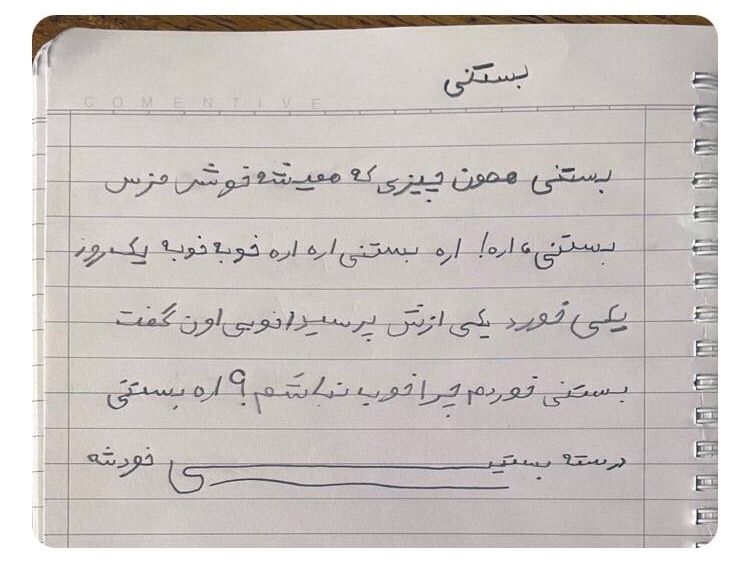 COMENTIVE
بستنی
بستنی همون چیزی که همیشه خوشمزس
بستنی، اره! اره بستنی اره اره خوبه خوبه یک روز
یکی خورد یکی ازش پرسید اخوبی اون گفت
بستنی خوردم چرا خوب نباشم؟ اره بستنی
درسته بستنـــــی خودشه